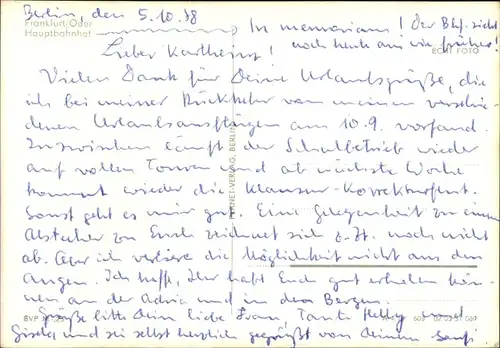 Berlin, den 5.10.88
Frankfurt-Oder
Hauptbahnhof
In memoriam! Der Bhf. sieht
noch heute aus wie früher!
ECHT FOTO
Lieber Karlheinz!
Vielen Dank für Deine Urlaubsgrüße, die
ich bei meiner Rückkehr von meinen verschie
denen Urlaubsausflügen am 10.9. vorfand.
Inzwischen läuft der Schulbetrieb wieder
auf vollen Touren und ab nächste Woche
kommt wieder die Klausur-Korrekturfront.
Sonst geht es mir gut. Eine Gelegenheit zu einem
Abstecher zu Euch zeichnet sich z.Zt. noch nicht
ab. Aber ich verliere die Möglichkeit nicht aus den
Augen. Ich hoffe, Ihr habt Euch gut erholen kön-
nen an der Adria und in den Bergen.
Grüße bitte Deine liebe Frau, Tante Helly und
Gisela, und sei selbst herzlich gegrüßt von Deinem
VERLAG, BERLIN
BVP